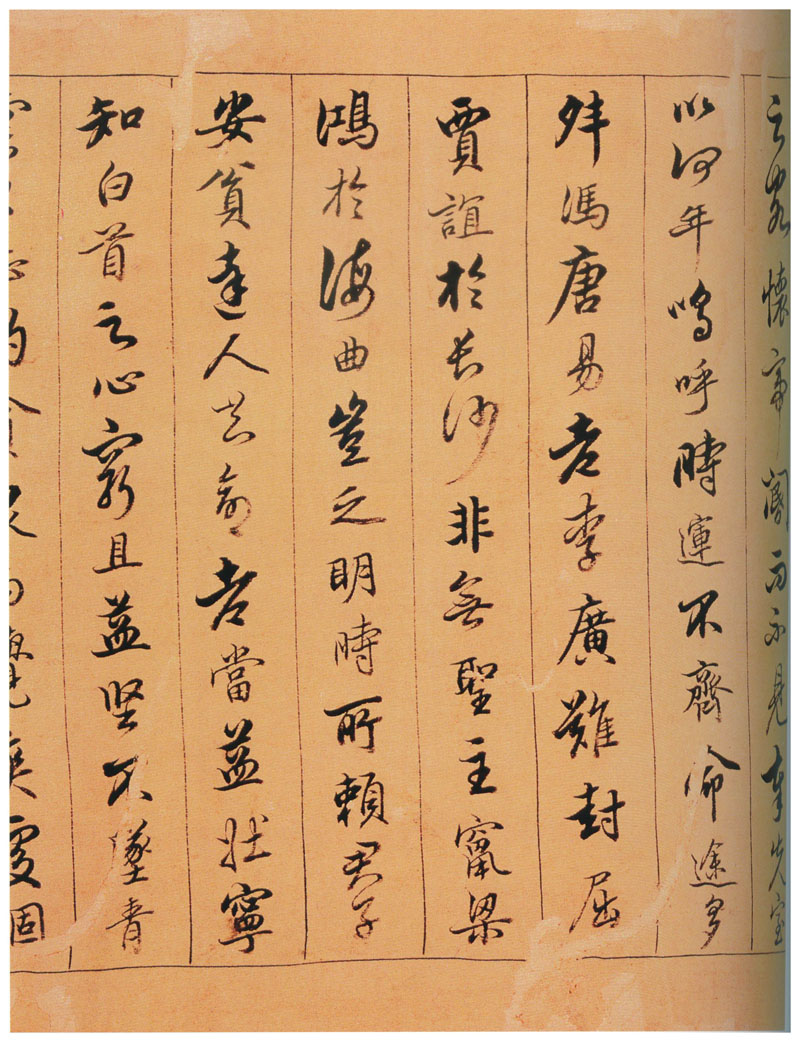 之客懷帝閽而不見奉宣室
以何年嗚呼時運不齊命途多
舛馮唐易老李廣難封屈
賈誼於長沙非無聖主竄梁
鴻於海曲豈乏明時所賴君子
安貧達人知命老當益壯寧
知白首之心窮且益坚不墜青
雲之志酌貪泉而覺爽處涸